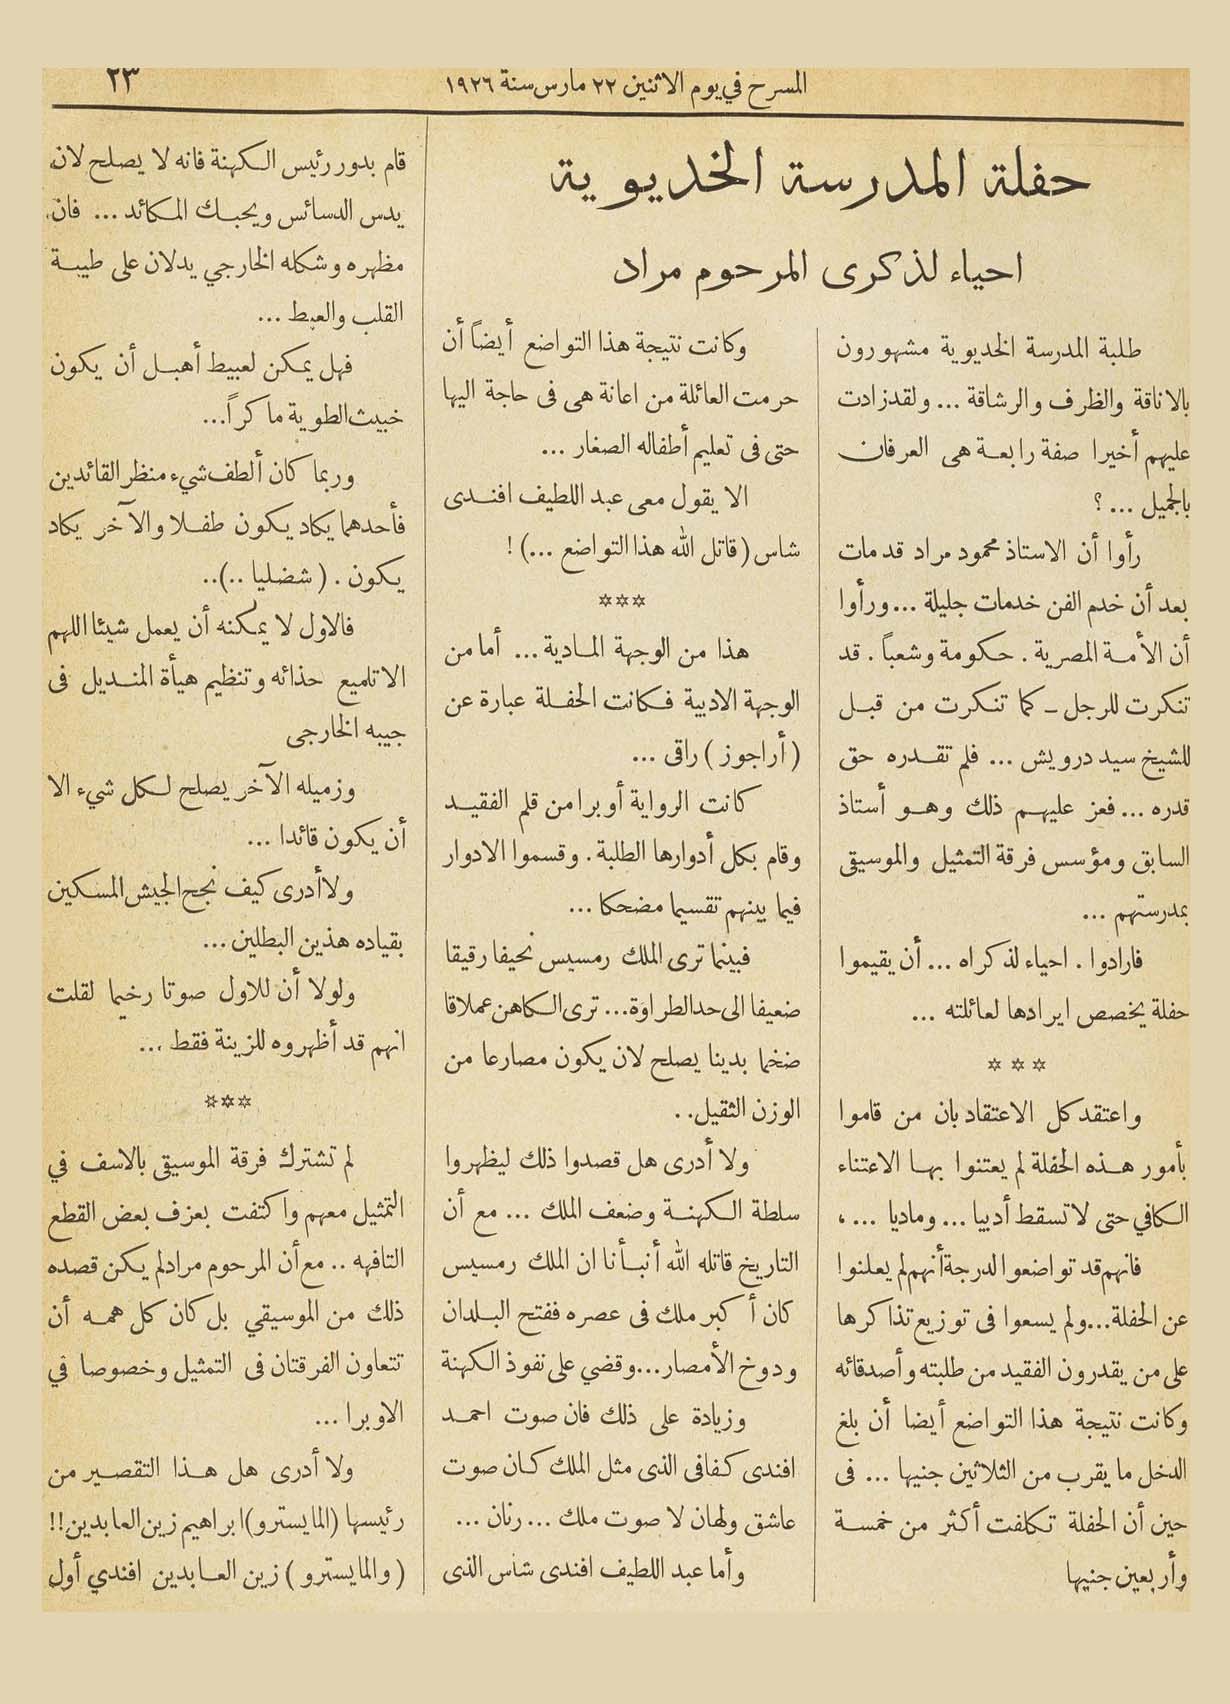 المسرح في يوم الاثنين ٢٢ مارس سنة ١٩٢٦
٢٣
حفلة المدرسة الخديوية
احياء لذكرى المرحوم مراد
طلبة المدرسة الخديوية مشهورون
بالاناقة والظرف والرشاقة ... ولقد زادت
عليهم أخيرا صفة رابعة هى العرفان
بالجميل ... ؟
رأوا أن الاستاذ محمود مراد قد مات
بعد أن خدم الفن خدمات جليلة ... ورأوا
أن الأمة المصرية . حكومة وشعباً . قد
تنكرت للرجل ـ كما تنكرت من قبل
للشيخ سيد درويش ... فلم تقدره حق
قدره ... فعز عليهم ذلك وهو أستاذ
السابق ومؤسس فرقة التمثيل والموسيقى
بمدرستهم ...
فارادوا . احياء لذكراه ... أن يقيموا
حفلة يخصص ايرادها لعائلته ...
✡ ✡ ✡
واعتقد كل الاعتقاد بان من قاموا
بأمور هذه الحفلة لم يعتنوا بها الاعتناء
الكافي حتى لا تسقط أدبيا ... وماديا ... ،
فانهم قد تواضعوا لدرجة أنهم لم يعلنوا!
عن الحفلة...ولم يسعوا فى توزيع تذاكرها
على من يقدرون الفقيد من طلبته وأصدقائه
وكانت نتيجة هذا التواضع أيضا أن بلغ
الدخل ما يقرب من الثلاثين جنيها ... فى
حين أن الحفلة تكلفت أكثر من خمسة
وأربعين جنيها
وكانت نتيجة هذا التواضع أيضاً أن
حرمت العائلة من اعانة هى فى حاجة اليها
حتى فى تعليم أطفاله الصغار ...
الا يقول معى عبد اللطيف افندى
شاس (قاتل الله هذا التواضع ...) !
✡✡✡
هذا من الوجهة المادية ... أما من
الوجهة الادبية فكانت الحفلة عبارة عن
(أراجوز) راقى ...
كانت الرواية أوبرا من قلم الفقيد
وقام بكل أدوارها الطلبة . وقسموا الادوار
فيما بينهم تقسيما مضحكا ...
فبينما ترى الملك رمسيس نحيفا رقيقا
ضعيفا الى حد الطراوة... ترى الكاهن عملاقا
ضخما بدينا يصلح لان يكون مصارعا من
الوزن الثقيل. .
ولا أدرى هل قصدوا ذلك ليظهروا
سلطة الكهنة وضعف الملك ... مع أن
التاريخ قاتله الله أنبأنا ان الملك رمسيس
كان أكبر ملك فى عصره ففتح البلدان
ودوخ الأمصار...وقضي على نفوذ الكهنة
وزيادة على ذلك فان صوت احمد
افندى كفافى الذى مثل الملك كان صوت
عاشق ولهان لا صوت ملك ... رنان ...
وأما عبد اللطيف افندى شاس الذى
قام بدور رئيس الكهنة فانه لا يصلح لان
يدس الدسائس ويحبك المكائد ... فان
مظهره وشكله الخارجي يدلان على طيبة
القلب والعبط ...
فهل يمكن لعبيط أهبل أن يكون
خبيث الطوية ماكراً...
وربما كان ألطف شيء منظر القائدين
فأحدهما يكاد يكون طفلا والآخر يكاد
يكون . (شضليا ..)..
فالاول لا يمكنه أن يعمل شيئا اللهم
الا تلميع حذائه وتنظيم هيأة المنديل فى
جيبه الخارجى
وزميله الآخر يصلح لكل شيء الا
أن يكون قائدا ...
ولا أدرى كيف نجح الجيش المسكين
بقياده هذين البطلين ...
ولولا أن للاول صوتا رخيما لقلت
انهم قد أظهروه للزينة فقط ...
✡✡✡
لم تشترك فرقة الموسيقى بالاسف في
التمثيل معهم واكتفت بعزف بعض القطع
التافهه .. مع أن المرحوم مراد لم يكن قصده
ذلك من الموسيقي بل كان كل همه أن
تتعاون الفرقتان فى التمثيل وخصوصا في
الاوبرا ...
ولا أدرى هل هذا التقصير من
رئيسها (المايسترو) ابراهيم زين العابدين!!
(والمايسترو) زين العابدين افندي أول